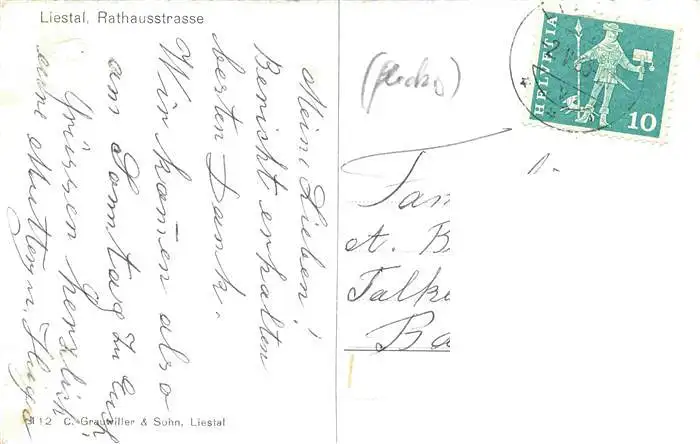 Liestal, Rathausstrasse
Meine Lieben!
Bericht erhalten
besten Dank.
Wir kom̄en also
am Somtag zu Euch
Grüssen herzlich
eure Mutter u.
HELVETIA
10
Fam
A. B
Talk
Ba
112 C. Grauwiller & Sohn, Liestal